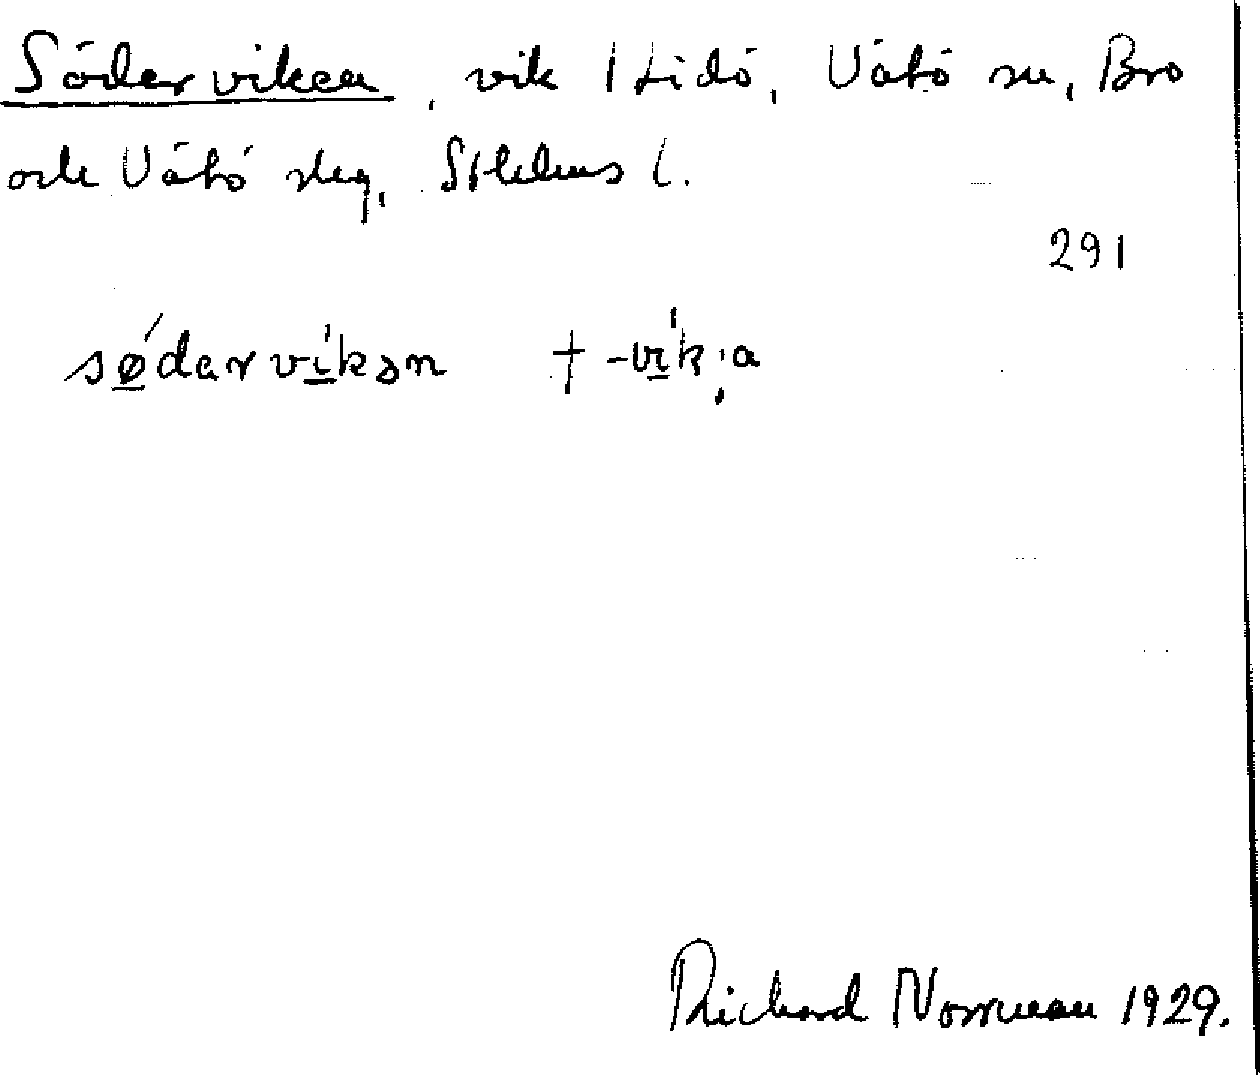 Södarviken, vik i Lidö, Vätö sn, Bro
och Vätö skg, Sthlms l.
291
sødarvikən † -vik;a
Richard Norrman 1929.